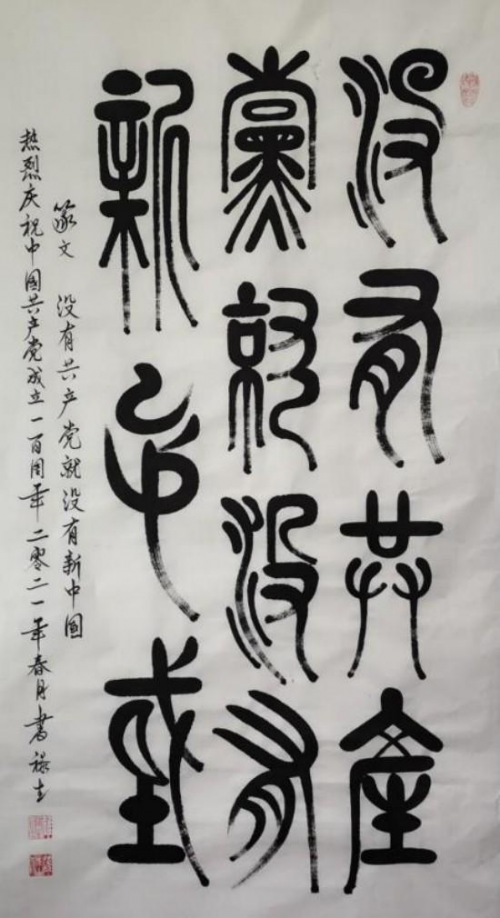 没有共產
黨就没有
新中或
篆文 没有共产党就没有新中国
热烈庆祝中国共产党成立一百周年二零二一年春月书